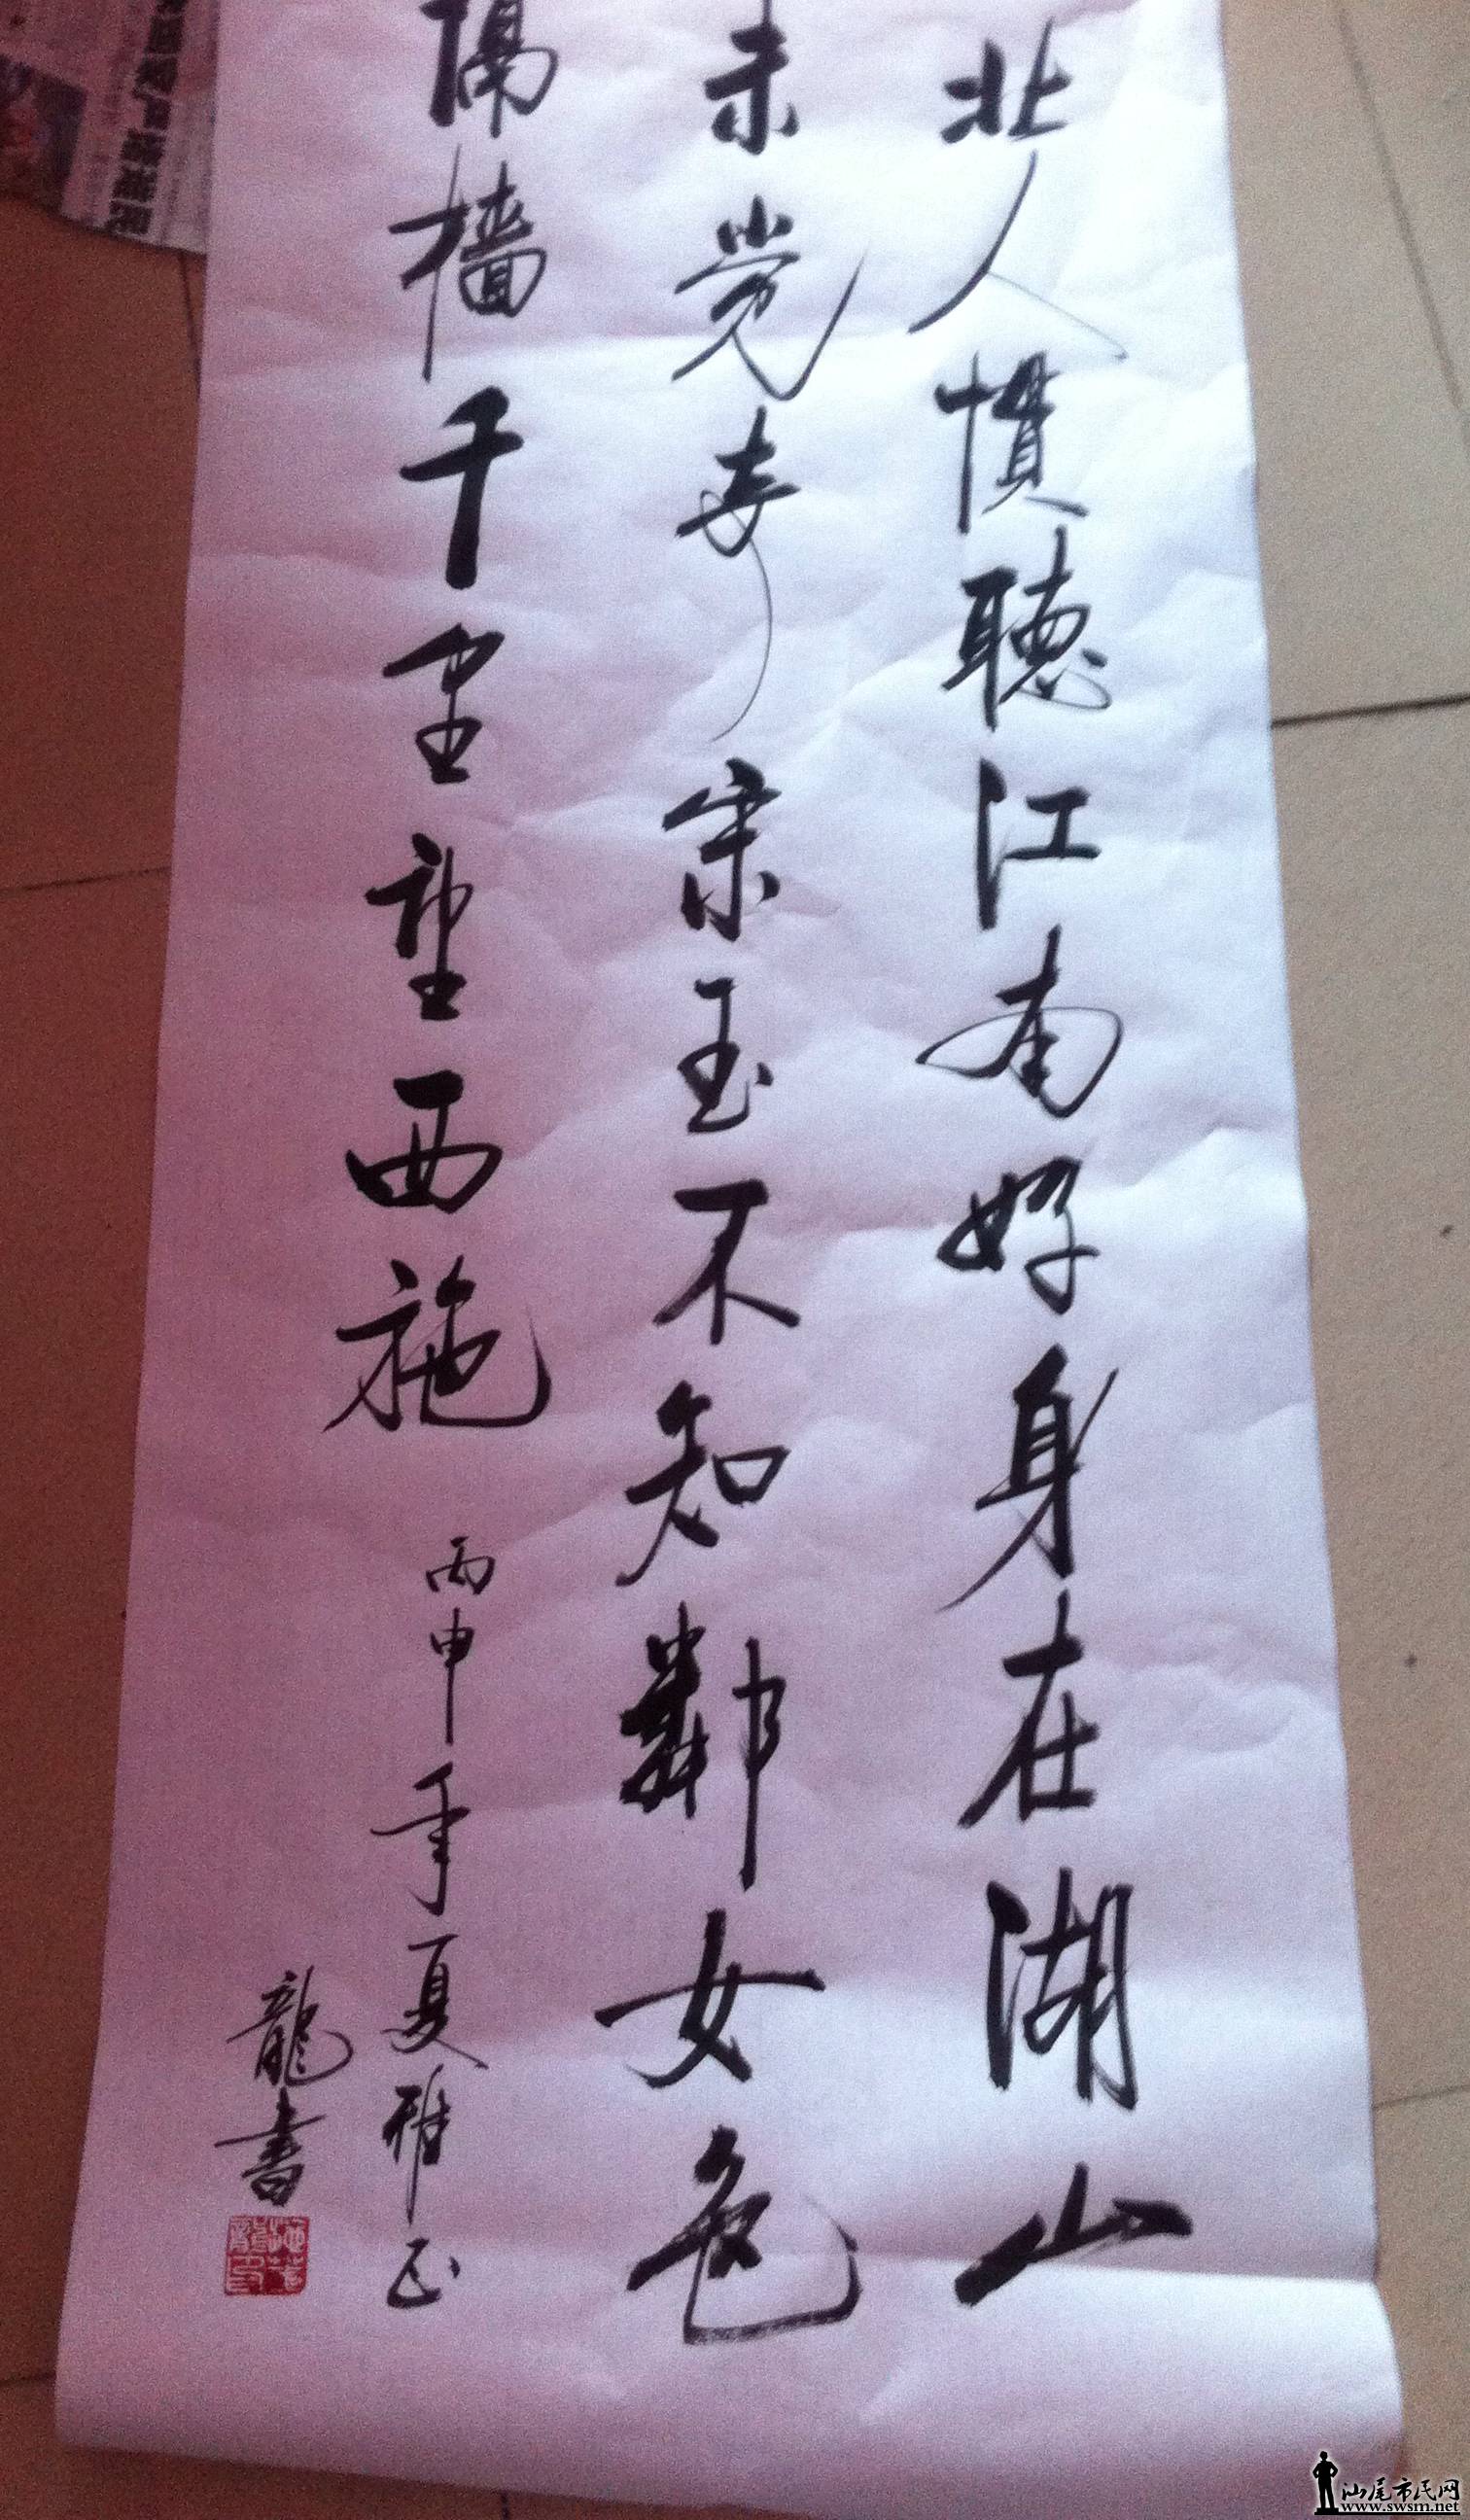 北人慣聽江南好身在湖山
未觉奇宋玉不知鄰女色
隔墙千里望西施
丙申年夏雅正
龍書
汕尾市民网
www.swsm.net